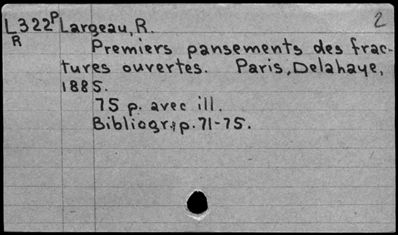 L322P Largeau, R. 2
R
Premiers pansements des frac-
tures ouvertes. Paris, Delahaye,
1885.
75 p. avec ill.
Bibliogr., p. 71-75.